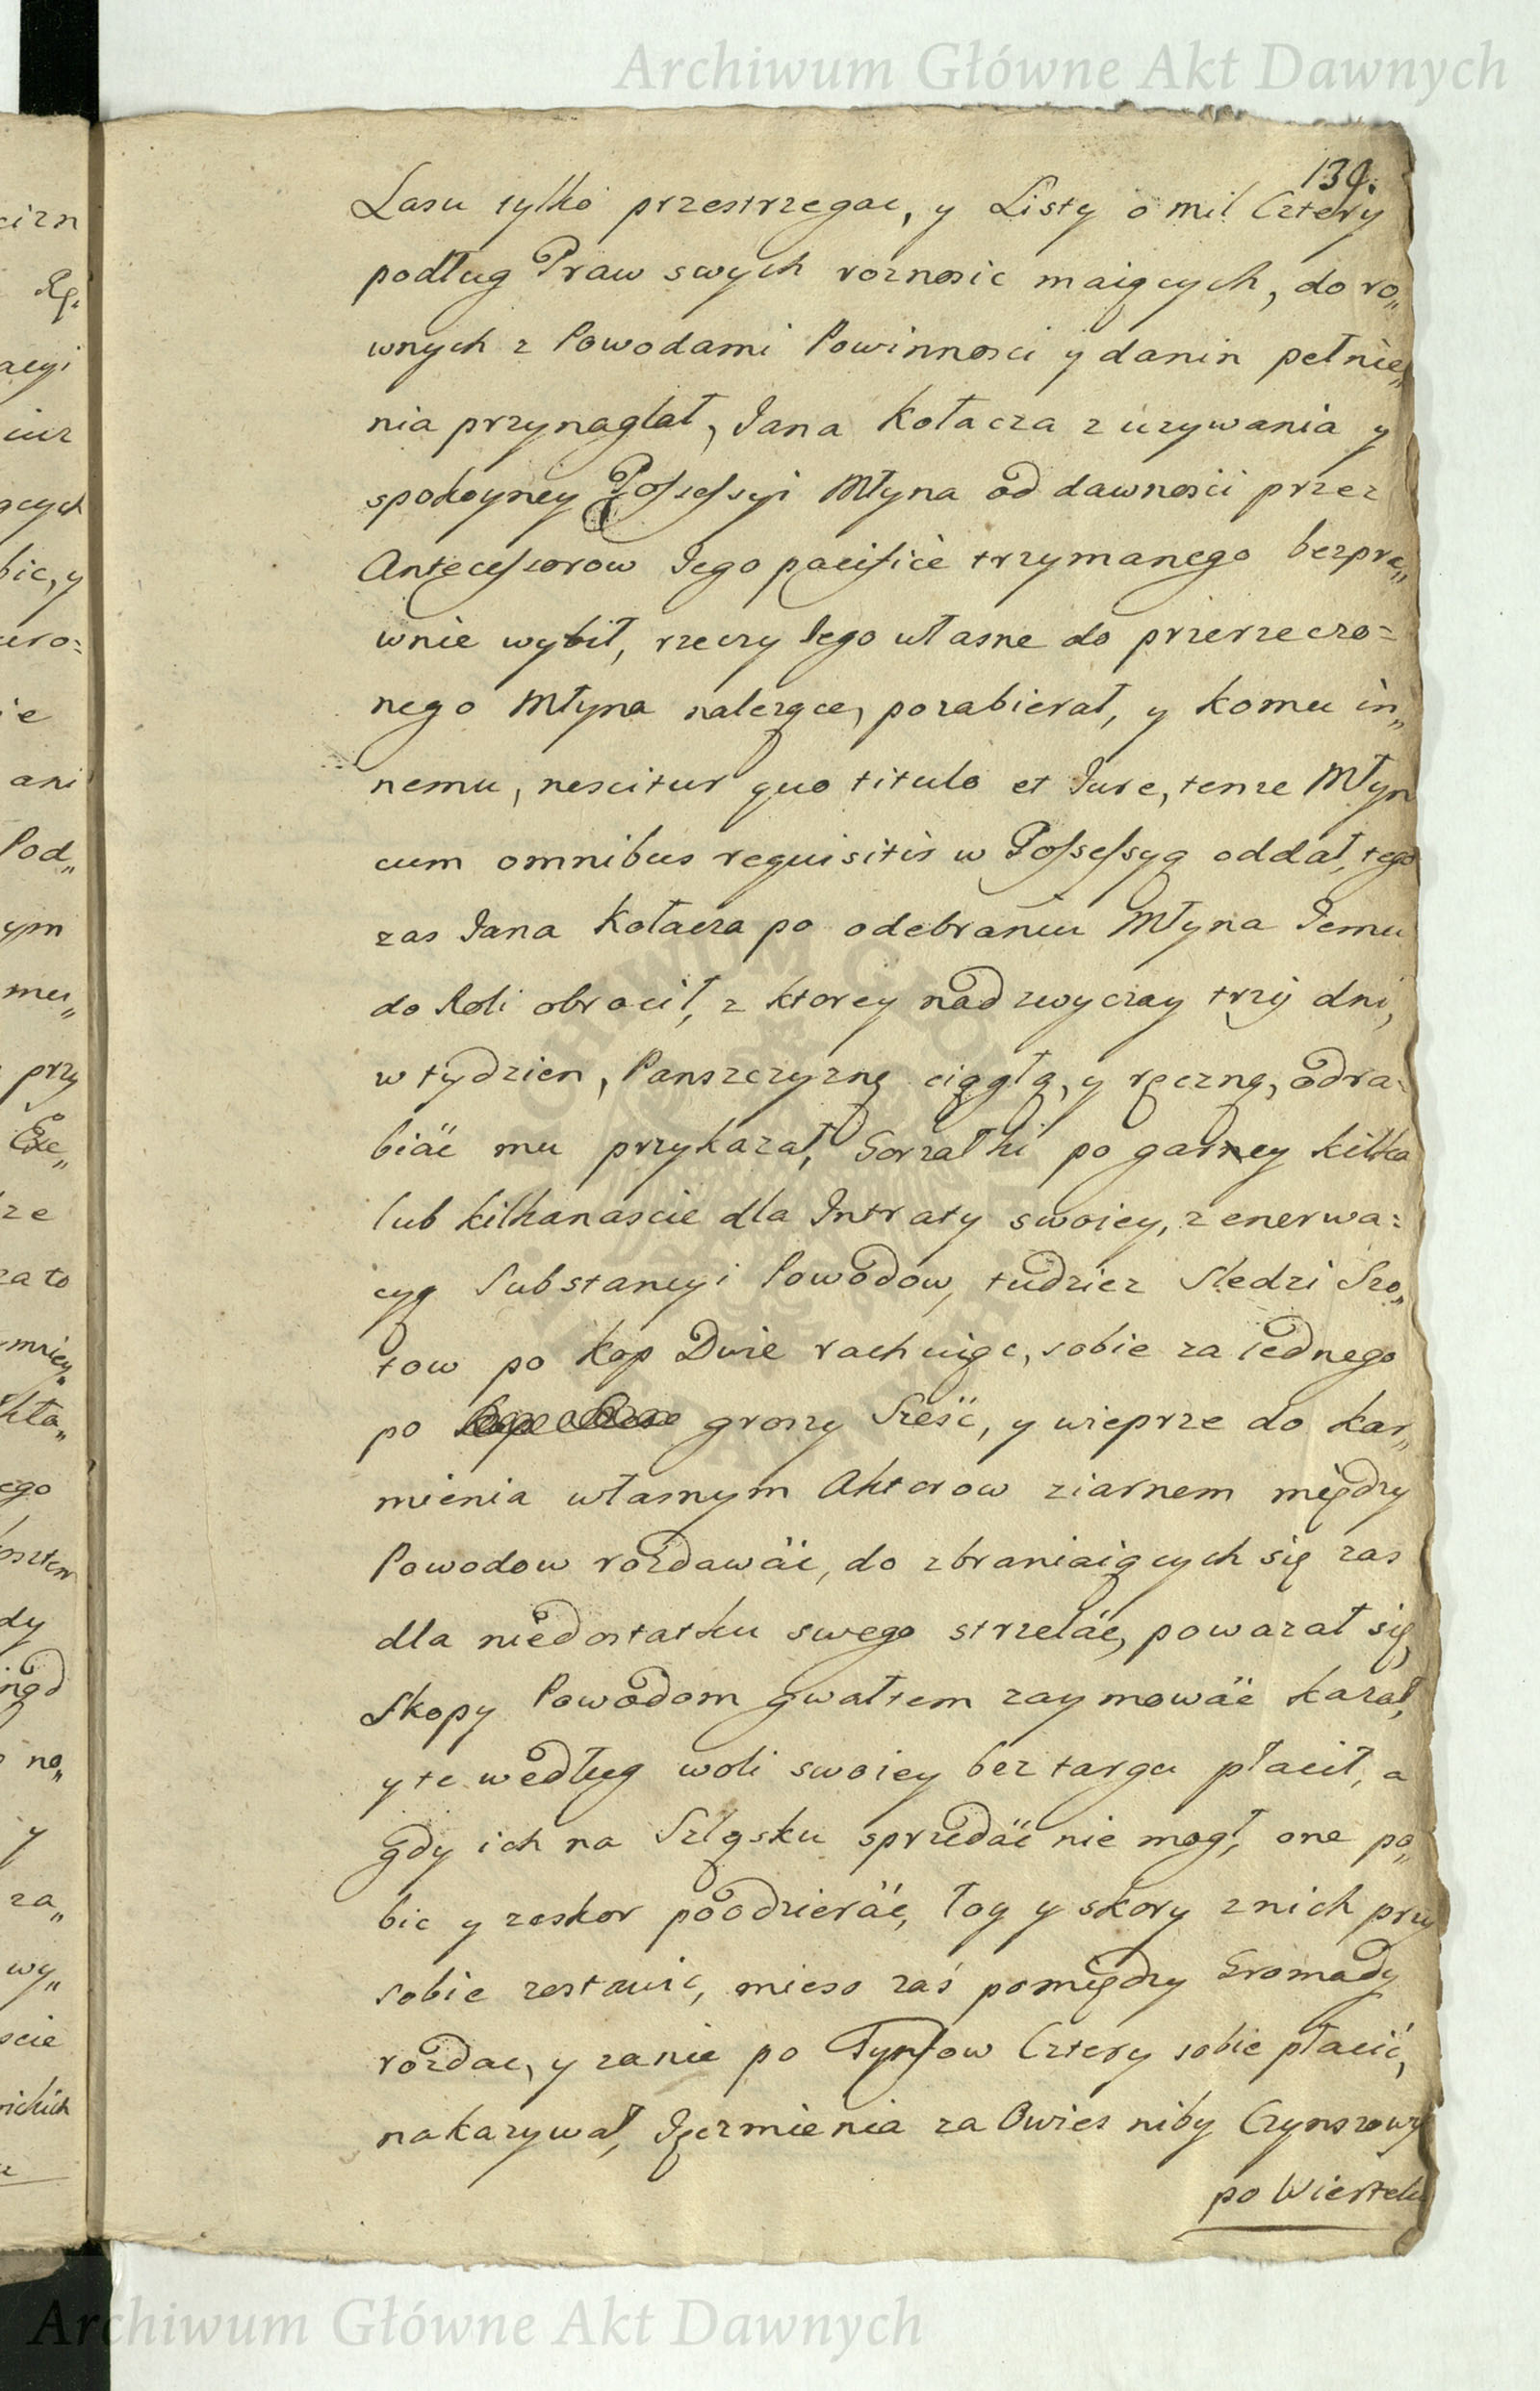 Archiwum Główne Akt Dawnych
139.
Lasu tylko przestrzegac, y Listy o mil Cztery
podług Praw swych roznosic maiących, do ro„
wnych z Powodami Powinnosci y danin pełnie„
nia przynaglał, Jana Kołacza z uzywania y
spokoyney Possessyi Młyna od dawnosci przez
Antecessorow Jego pacifice trzymanego bezpra„
wnie wybił, rzeczy Jego własne do przerzeczo=
nego Młyna nalezące, pozabierał, y komu in„
nemu, nescitur quo titulo et Jure, tenze Młyn
cum omnibus requisitis w Possessyą oddał, tego
zas Jana Kołacza po odebraniu Młyna Jemu
do Roli obrocił, z ktorey nad zwyczay trzy dni,
w tydzien, Panszczyznę ciągłą, y ręczną, odra=
biać mu przykazał, Gorzałki po garncy kilka
lub kilkanascie dla Intraty swoiey, z enerwa=
cyą Substancyi Powodow, tudziez Sledzi Szo„
tow po kop Dwie rachuiąc, sobie za iednego
po groszy Sześć, y wieprze do kar„
mienia własnym Aktorow ziarnem między
Powodow rozdawać, do zbraniaiących się zas
dla niedostatku swego strzelać, powazał się,
Skopy Powodom gwałtem zaymować kazał,
y te według woli swoiey bez targu płacił, a
gdy ich na Szląsku sprzedać nie mogł, one po„
bic y zeskor poodzierać, łoy y skory z nich przy
sobie zostawic, mieso zaś pomiędzy Gromady
rozdac, y zanie po Tynfow Cztery sobie płacić,
nakazywał, Jęczmienia za Owies niby Czynszowy
po Wiertelu
Archiwum Główne Akt Dawnych